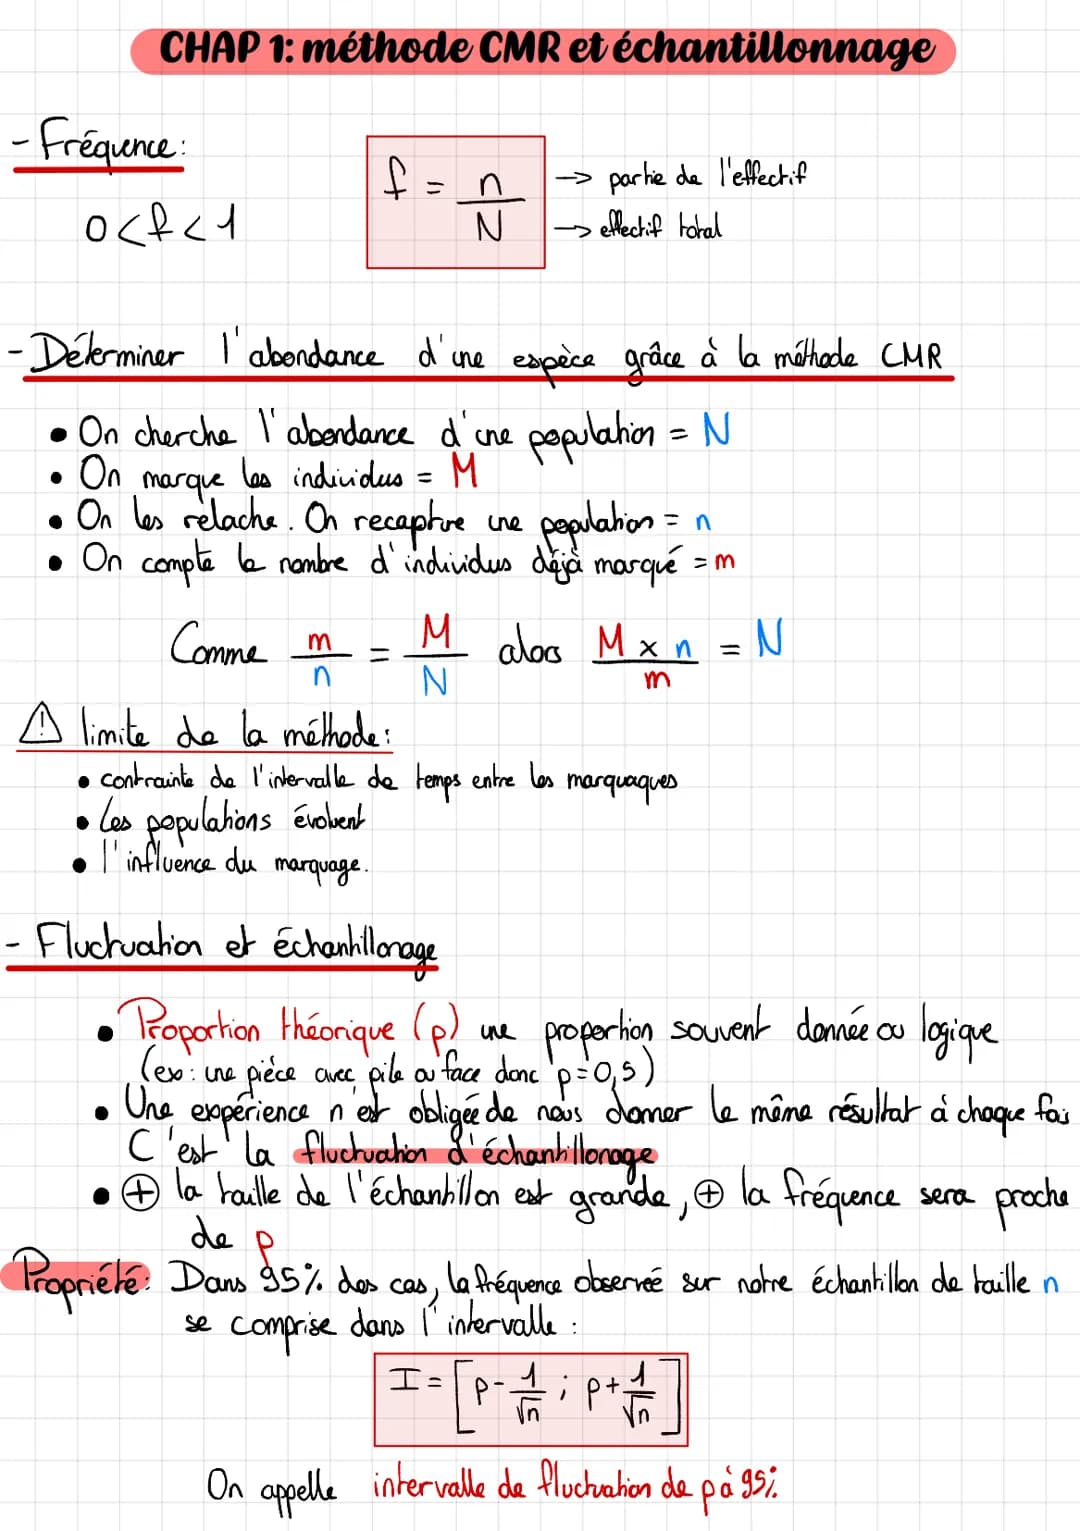 CHAP 1: méthode CMR et échantillonnage
- Fréquence:
f = n/N
→ partie de l'effectif
→ effectif total
0<f<1
- Déterminer l'abondance d'une espèce grâce à la méthode CMR
• On cherche l'abondance d'une population = N
• On marque les individus = M
• On les relache. On recapture une population = n
• On compte le nombre d'individus déjà marqué = m
Comme m/n = M/N alors M x n/m = N
⚠ limite de la méthode:
• contrainte de l'intervalle de temps entre les marquaques
• Les populations évoluent
• l'influence du marquage.
- Fluctuation et échantillonage
• Proportion théorique (p) une proportion souvent donnée ou logique
(ex: une pièce avec pile ou face donc p=0,5)
• Une expérience n'est obligée de nous donner le même résultat à chaque fois
C'est la fluctuation d'échantillonage
• ⊕ la taille de l'échantillon est grande, ⊕ la fréquence sera proche
de p
Propriété: Dans 95% des cas, la fréquence observée sur notre échantillon de taille n
se comprise dans l'intervalle :
I = [p - 1/√n ; p + 1/√n]
On appelle intervalle de fluctuation de p à 95%